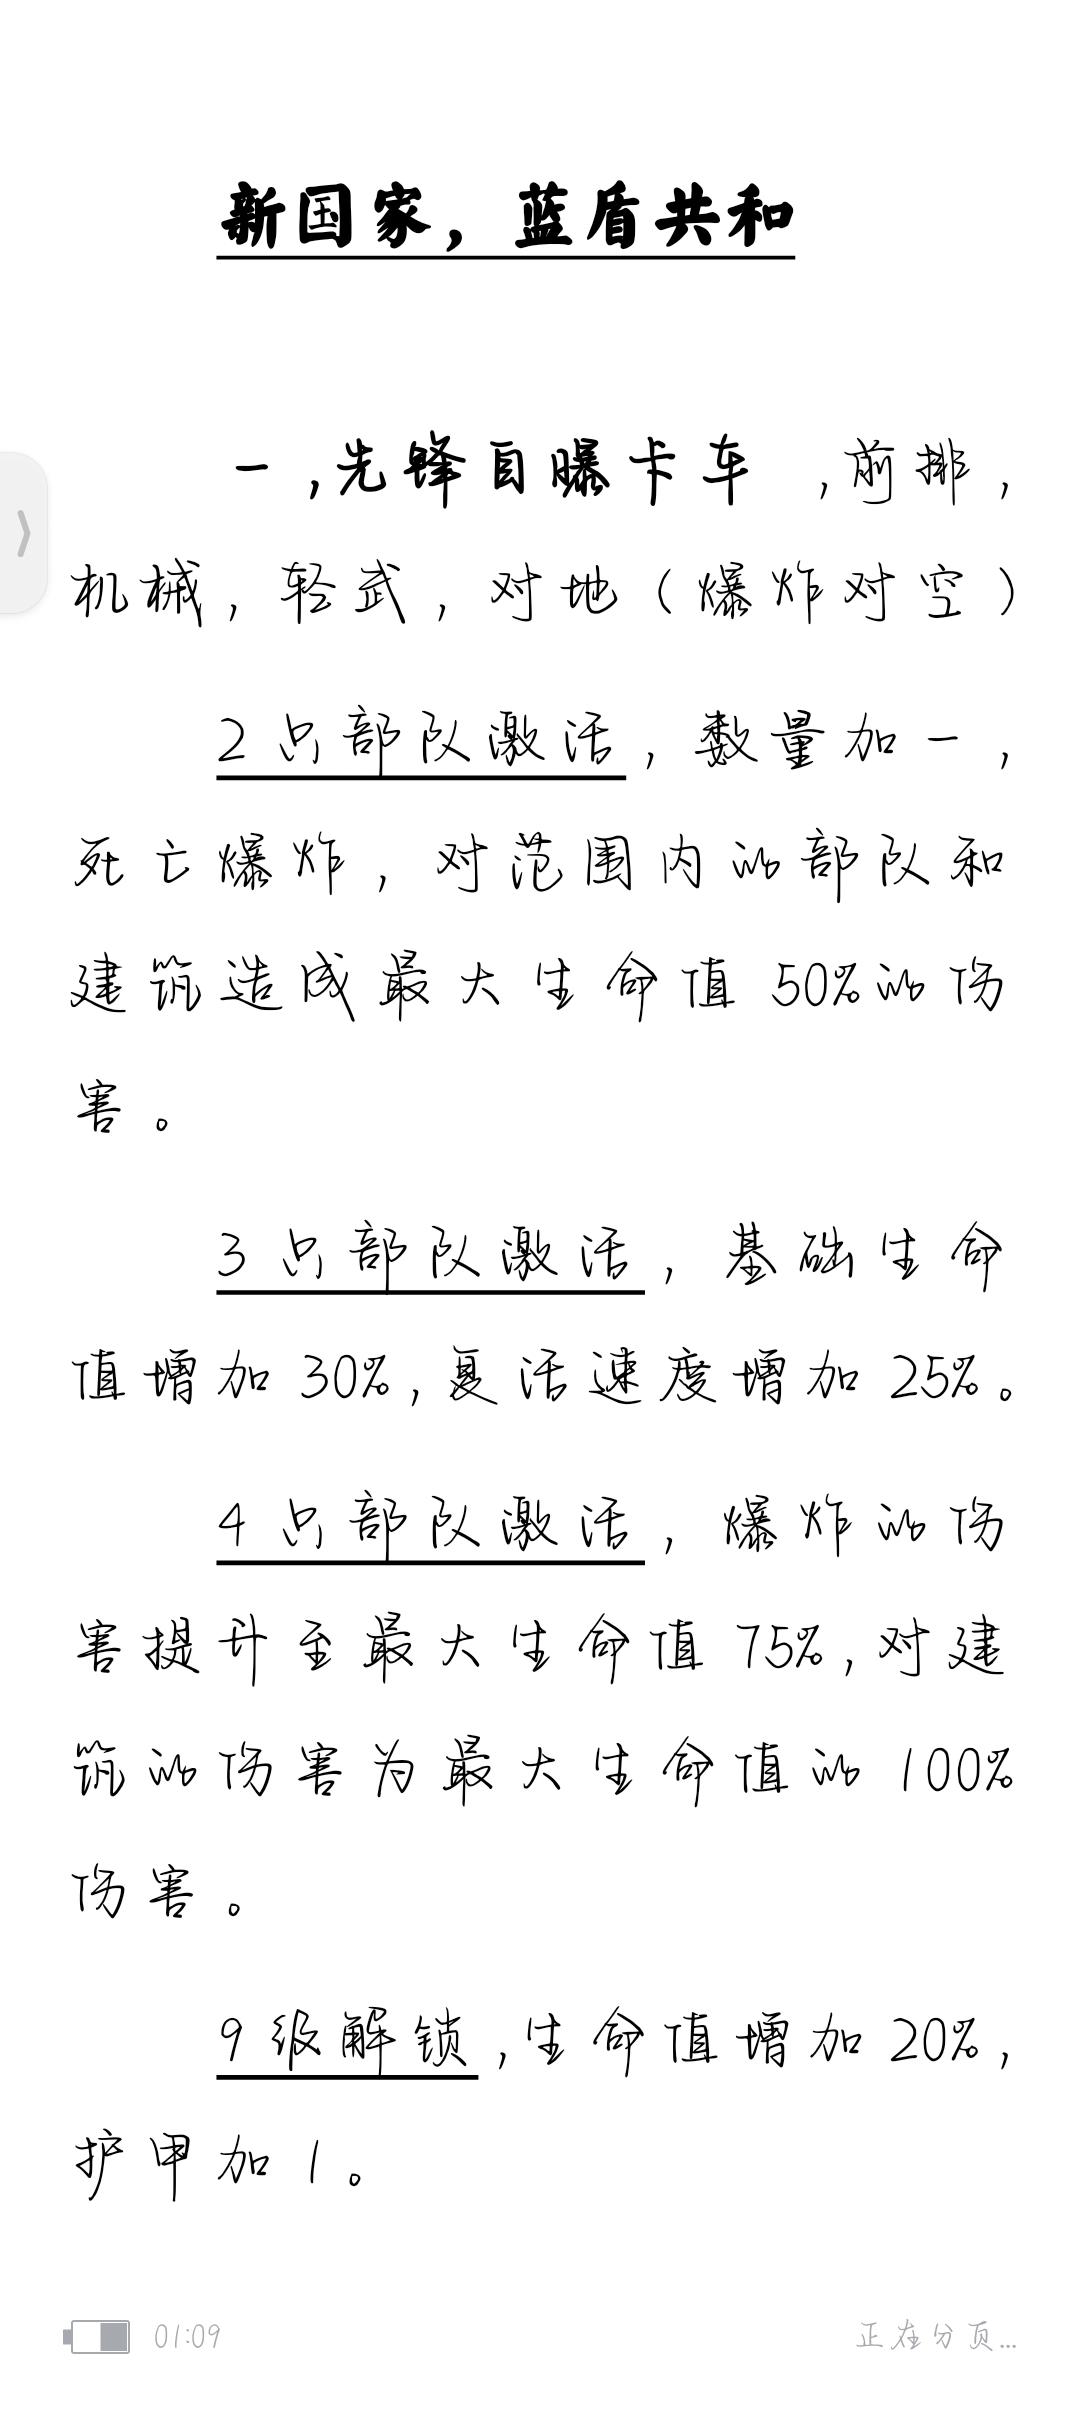 新国家，蓝盾共和
一，先锋自曝卡车 ，前排，
机械，轻武，对地（爆炸对空）
2只部队激活，数量加一，
死亡爆炸，对范围内的部队和
建筑造成最大生命值50%的伤
害。
3只部队激活，基础生命
值增加30%，复活速度增加25%。
4只部队激活，爆炸的伤
害提升至最大生命值75%，对建
筑的伤害为最大生命值的100%
伤害。
9级解锁，生命值增加20%，
护甲加1。
01:09
正在分页...